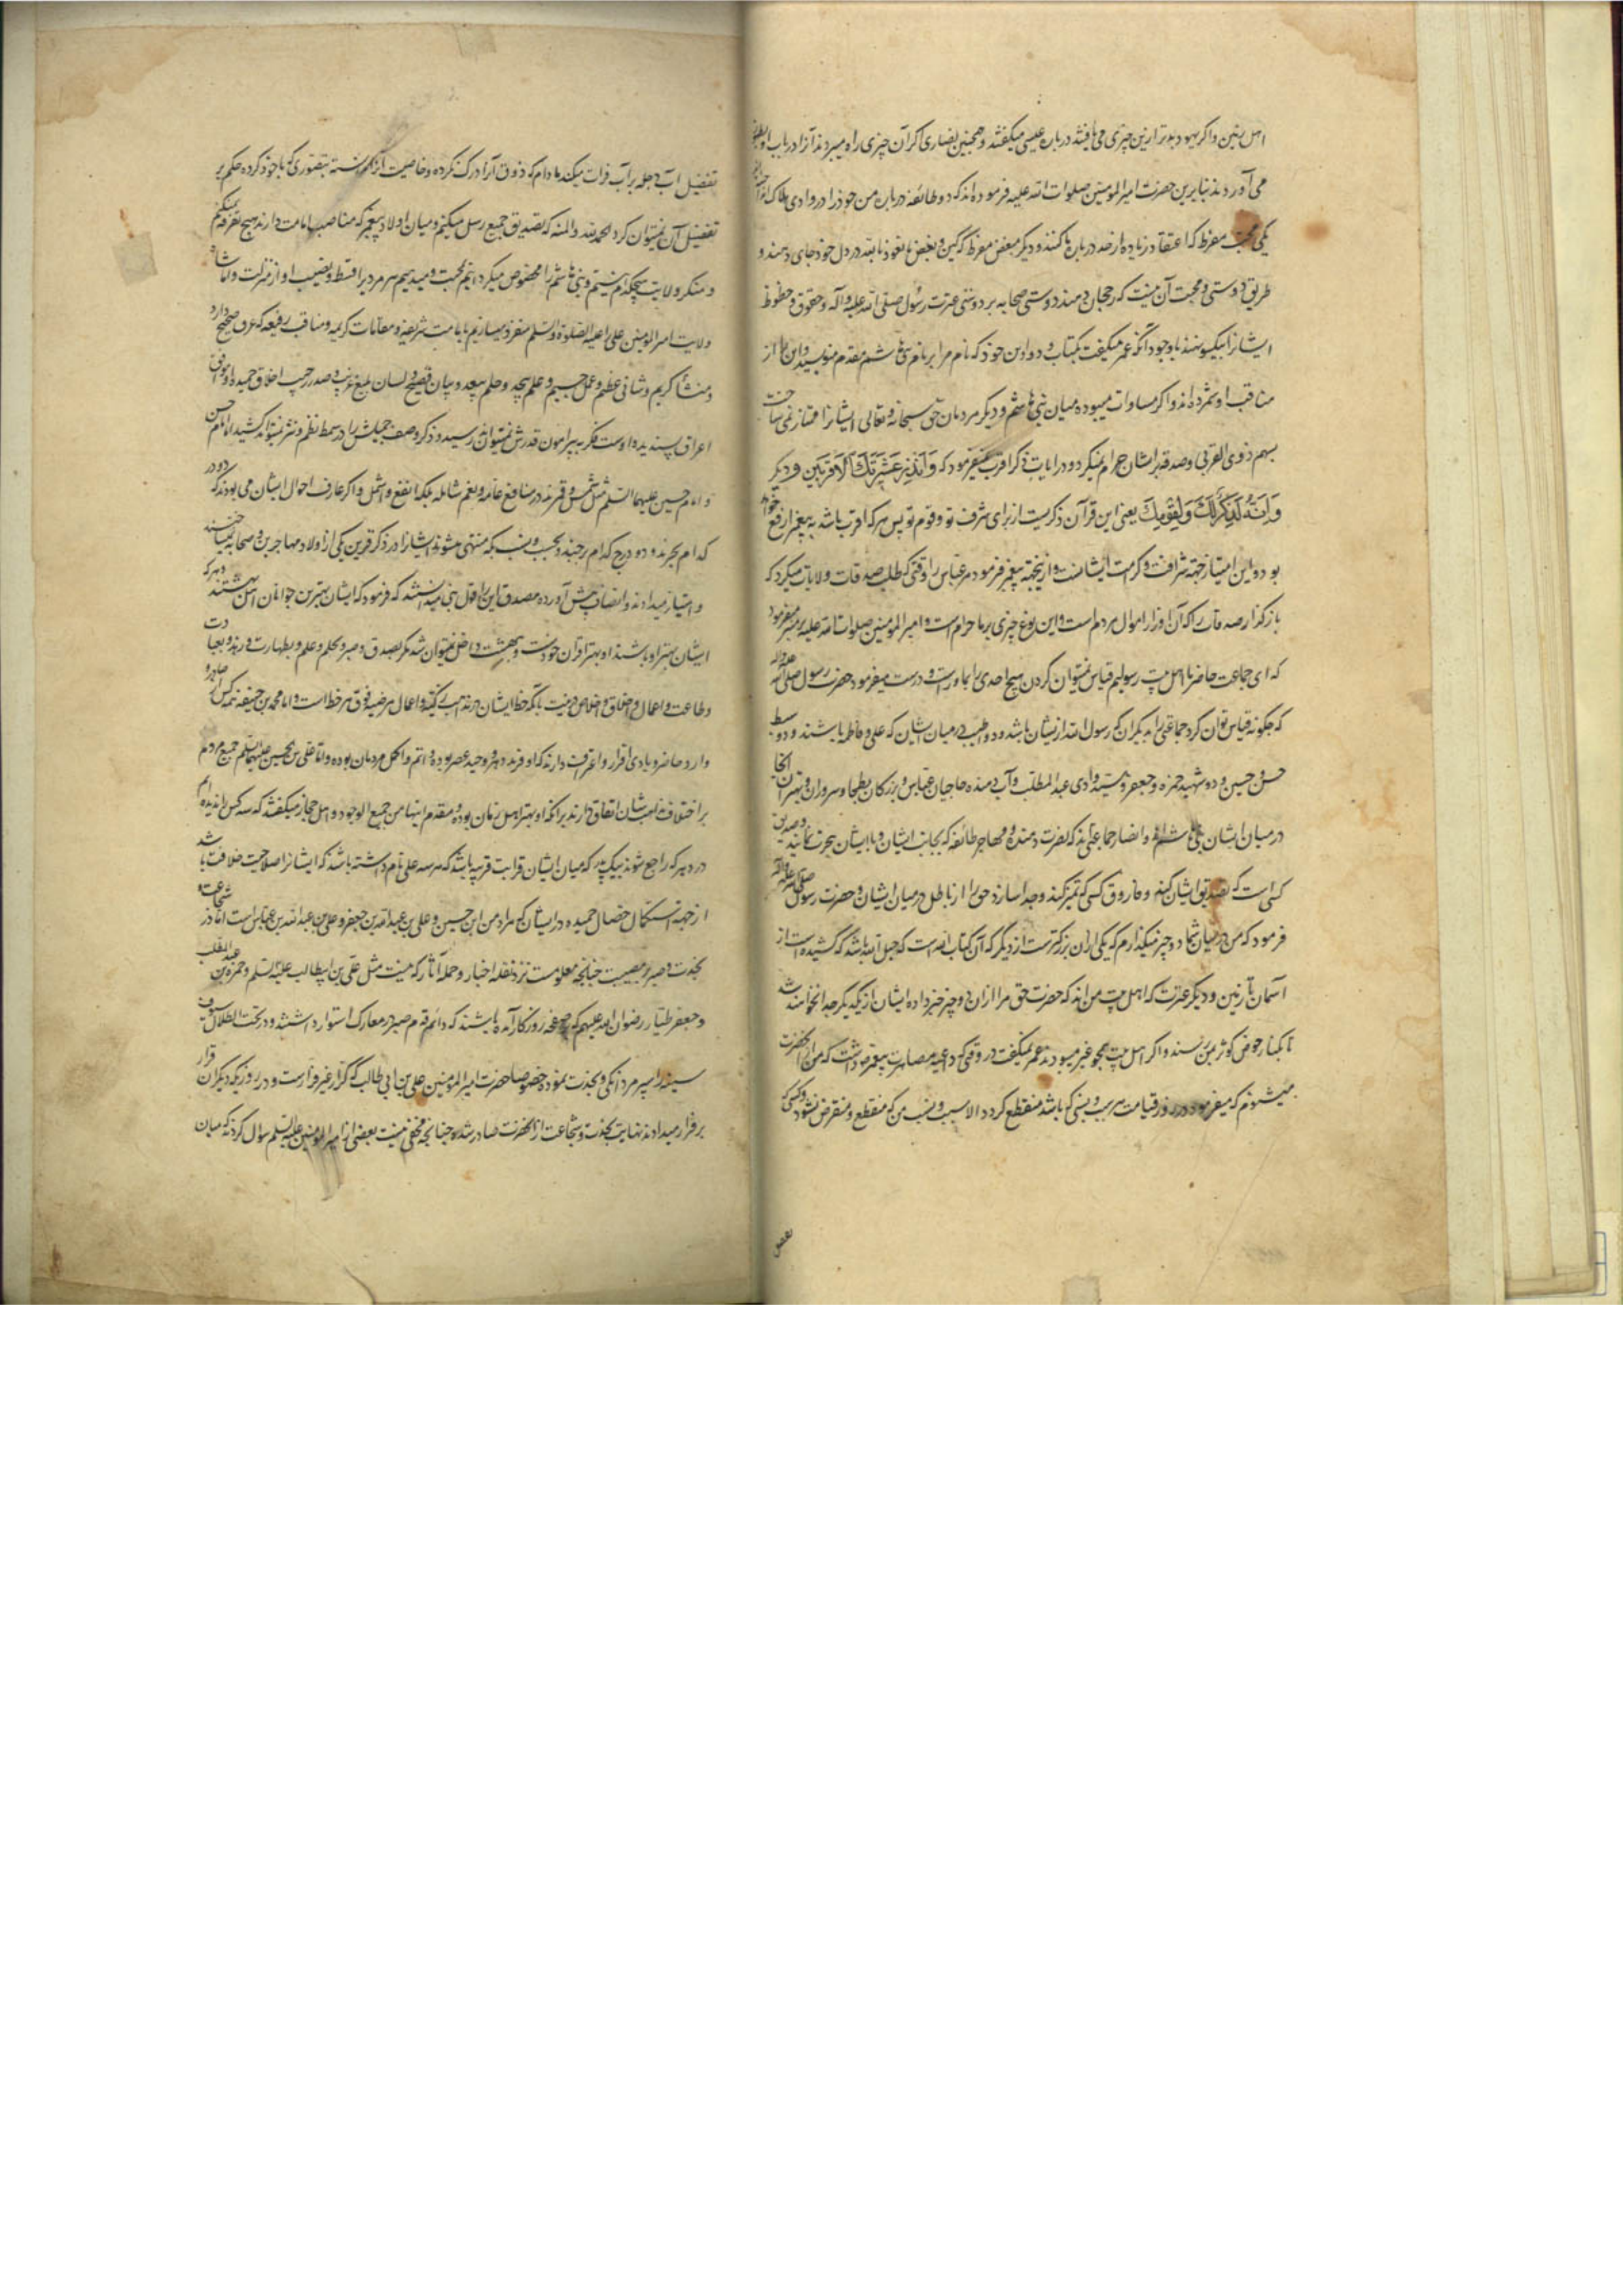 اهل زمین و اگر یهود بدتر ازین چیزی می یافتند درباره عیسی میگفتند و همچنین نصاری اگر آن چیزی راه میبردند آنرا در باب
می آوردند بنابرین حضرت امیرالمومنین صلوات الله علیه فرموده اند که دو طائفه در باره من خود را در وادی هلاک
یکی محب مفرط که اعتقاد زیاده از حد در باره ما کنند و دیگر مبغض مفرط که کین و بغض ما نعوذ بالله در دل خود جای دهند و
طریق دوستی و محبت آن نیست که رجحان دهند دوستی صحابه بر دوستی عترت رسول صلی الله علیه و آله و حقوق و حظوظ
ایشانرا بیکسو نهند با وجود آنکه عمر میگفت بکتاب و دواوین خود که نام مرا بر نام بنی هاشم مقدم منویسید و این را از
مناقب او شمرده اند و اگر مساوات میبوده میان بنی هاشم و دیگر مردمان حق سبحانه و تعالی ایشانرا ممتاز نمی ساخت
بسهم ذوی القربی و صدقه بر ایشان حرام نمیکرد و در آیات ذکر اقرب نمیفرمود که وَاَنْذِرْ عَشيرَتَكَ الْاَقْرَبينَ و دیگر
وَاِنَّهُ لَذِكْرٌ لَكَ وَلِقَوْمِكَ یعنی این قرآن ذکریست از برای شرف تو و قوم تو پس هر که اقرب باشد به پیغمبر ارفع خواهد
بود و این امتیاز جهة شرافت و کرامت ایشانست و ازینجهة پیغمبر فرمود مر عباس را وقتی که طلب صدقات ولایات میکرد که
بازگذار صدقات را که آن اوزار اموال مردم است و این نوع چیزی بر ما حرام است و امیرالمومنین صلوات الله علیه بر منبر میفرمود
که ای جماعت حاضر ما اهل بیت رسولیم قیاس نمیتوان کردن هیچ احدی را بما و راست و درست میفرمود حضرت رسول صلی الله علیه و اله
که چگونه قیاس توان کرد جماعتی را بدیگران که رسول الله از یشان باشد و دو طیب در میان ایشان که علی و فاطمه باشند و دو سبط
حسن و حسین و دو شهید حمزه و جعفر و سید وادی عبدالمطلب و آب دهنده حاجیان عباس و بزرگان بطحا و سروران و بهتران آنجا
در میان ایشان بنی هاشم اند و انصار جماعتی اند که نصرت دهنده و مهاجر طائفه که بجانب ایشان و با ایشان هجرت نمایند و صدیق
کسی است که تصدیق ایشان کند و فاروق کسی که تمیز کند و جدا سازد حق را از باطل در میان ایشان و حضرت رسول صلی الله علیه و آله
فرمود که من در میان شما دو چیز میگذارم که یکی از آن بزرگتر است از دیگر که آن کتاب الله است که حبل الله باشد که کشیده است از
آسمان تا زمین و دیگر عترت که اهل بیت من اند که حضرت حق مرا از آن دو چیز خبر داده ایشان از یکدیگر جدا نخواهند شد
تا بکنار حوض کوثر بمن رسند و اگر اهل بیت همچو غیر میبودند عمر نمیگفت در وقتی که داعیه مصاهرت پیغمبر داشت که من از آنحضرت
میشنودم که میفرمود در روز قیامت هر سبب و نسبی که باشد منقطع گردد الا سبب و نسب من که منقطع و منقرض نشود و کسی که
بعضی
تفضیل آب دجله بر آب فرات میکند مادام که ذوق آنرا درک نکرده و خاصیت آنرا ندانسته بتصوری که با خود کرده حکم بر
تفضیل آن نمیتوان کرد الحمد لله والمنه که تصدیق جمیع رسل میکنیم و میان اولاد پیغمبر که مناصب امامت دارند هیچ تفرقه نمیکنیم
و منکر ولایت هیچکدام نیستیم و بنی هاشم را مخصوص میگردانیم بمحبت و میدهیم هر مرد را قسط و نصیب او از منزلت و اما شان
ولایت امیرالمومنین علی علیه الصلوة والسلم منفرد میسازیم بامامت شریفه و مقامات کریمه و مناقب رفیعه که عرق صحیح دارد
و منشأ کریم و شانی عظیم و عمل جسیم و علم بیحد و حلم بیعد و بیان فصیح و لسان بلیغ و صدر رحیب اخلاق حمیده او موافق
اعراق پسندیده اوست فکر به پیرامون قدرش نمیتواند رسید و ذکر وصف جمیلش را در سمط نظم و نثر نمیتواند کشید اما امام حسن
و امام حسین علیهما السلم مثل شمس و قمرند در منافع عامه و نعم شامله بلکه انفع و اشمل و اگر عارف احوال ایشان می بودند که دو در
کدام بحرند و دو درج کدام برجند و بحسب و نسب بکه منتهی میشوند ایشانرا در ذکر قرین یکی از اولاد مهاجرین و صحابه نمیساختند
و امتیاز میدادند و انصاف پیش آورده مصدق این را قول نبی میدانستند که فرمود که ایشان بهترین جوانان اهل بهشتند و هر که
ایشان بهتر او باشند او بهتر اقران خودست و بهشت داخل نمیتوان شد مگر بصدق و صبر و بحلم و علم و بطهارت و زهد و بعبادت
و طاعت و اعمال و اخلاق و اخلاص و نیت
وارد حاضر و بادی اقرار و اعتراف دارند که او فرید دهر و وحید عصر بوده و اتم و اکمل مردمان بوده و اما علی بن الحسین علیهما السلم جمیع مردم
بر اختلاف مذاهب شان اتفاق دارند بر آنکه او بهتر اهل زمان بوده و مقدم ابنا من جمیع الوجوه و اهل حجاز میگفتند که سه کس را ندیده ایم
در دهر که راجع شوند بیک پدر که میان ایشان قرابت قریبه باشد که هر سه علی نام داشته باشند که ایشانرا صلاحیت خلافت باشد
از جهة استکمال خصال حمیده در ایشان که مراد من ابن حسین و علی بن عبدالله بن جعفر و علی بن عبدالله بن عباس است اما در شجاعت و
نجدت و صبر بر مصیبت چنانچه معلومست نزد نقله اخبار و حمله آثار که نیست مثل علی بن ابیطالب علیه السلم و حمزه بن عبدالمطلب
و جعفر طیار رضوان الله علیهم که بعرصه روزگار آمده باشند که دائم قدم صبر در معارک استوار داشتند و در تحت الظلال سیوف
سینه را سپر مردانگی و نجدت نموده خصوصا حضرت امیرالمومنین علی بن ابی طالب که کرار غیر فرارست و در روزیکه دیگران قرار
بر فرار میدادند نهایت نجدت و شجاعت از آنحضرت صادر شده چنانچه مخفی نیست بعضی از امیرالمومنین علیه السلم سوال کردند که میان